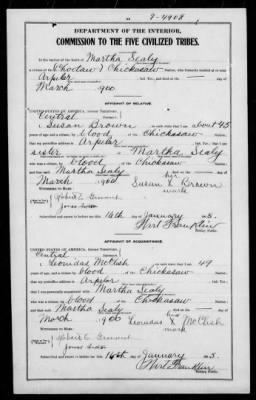 9-4908
DEPARTMENT OF THE INTERIOR,
COMMISSION TO THE FIVE CIVILIZED TRIBES.
In the matter of the death of Martha Sealy
a citizen of the Choctaw & Chickasaw Nation, who formerly resided at or near
Arpelar Ind. Ter., and died on the — day of
March 1900
AFFIDAVIT OF RELATIVE.
UNITED STATES OF AMERICA, INDIAN TERRITORY,
Central
I, Susan Brown on oath state that I am about 45
years of age and a citizen by blood of the Chickasaw Nation;
that my postoffice address is Arpelar Ind. Ter.; that I am
sister of Martha Sealy
who was a citizen by blood of the Chickasaw Nation
and that said Martha Sealy died on the — day of
March 1900
WITNESSES TO MARK:
her
Susan X Brown
mark
Subscribed and sworn to before me this 16th day of January 190
Wirt Franklin
Notary Public.
AFFIDAVIT OF ACQUAINTANCE.
UNITED STATES OF AMERICA, INDIAN TERRITORY,
Central
I, Leonidas McClish on oath state that I am 49
years of age, and a citizen by blood of the Chickasaw Nation;
that my postoffice address is Arpelar Ind. Ter.;
that I was personally acquainted with Martha Sealy
who was a citizen by blood of the Chickasaw Nation
and that said Martha Sealy died on the — day of
March 1900
WITNESSES TO MARK:
his
Leonidas X McClish
mark
Subscribed and sworn to before me this 16th day of January 190
Wirt Franklin
Notary Public.